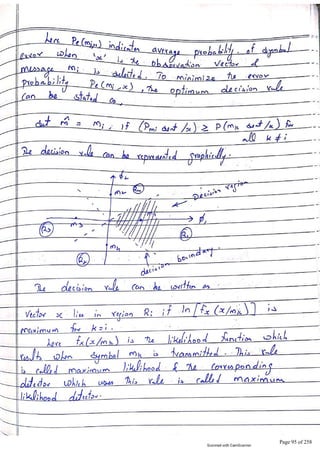 here Pe(mi,x) indicates average probability of symbol
error when 'x' is the observation vector &
message mi is selected. To minimize the error
probability Pe(mi,x), the optimum decision rule
can be stated as,
Set m̂ = mi, if (P mi sent /x) ≥ P(mk sent/x) for
all k ≠ i
The decision rule can be represented graphically.
ϕ2
m2
Decision region
ϕ1
m3
mk
decision boundary
The decision rule can be written as
Vector x lies in region Ri if ln [fx (x/mk)] is
maximum for k=i.
here fx(x/mk) is the likelihood function which
results when symbol mk is transmitted. This rule
is called maximum likelihood & the corresponding
detector which uses this rule is called maximum
likelihood detector.
Scanned with CamScanner
Page 95 of 258